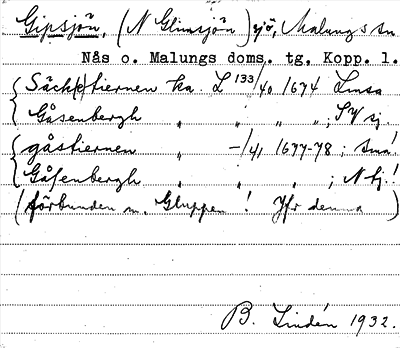 Gipsjön, (N Glimsjön) sjö, Malungs sn
Nås o. Malungs doms. tg. Kopp. l.
Säch(e)tiernen ka. L 133/40 1674
Gåsenbergh " " " ", SV sj
gåstiernen " -/41 1677-78; små!
Gåsenbergh " " " ; N bj.!
(förbunden m. Gluppen! Jfr denna)
B. Lindén 1932.